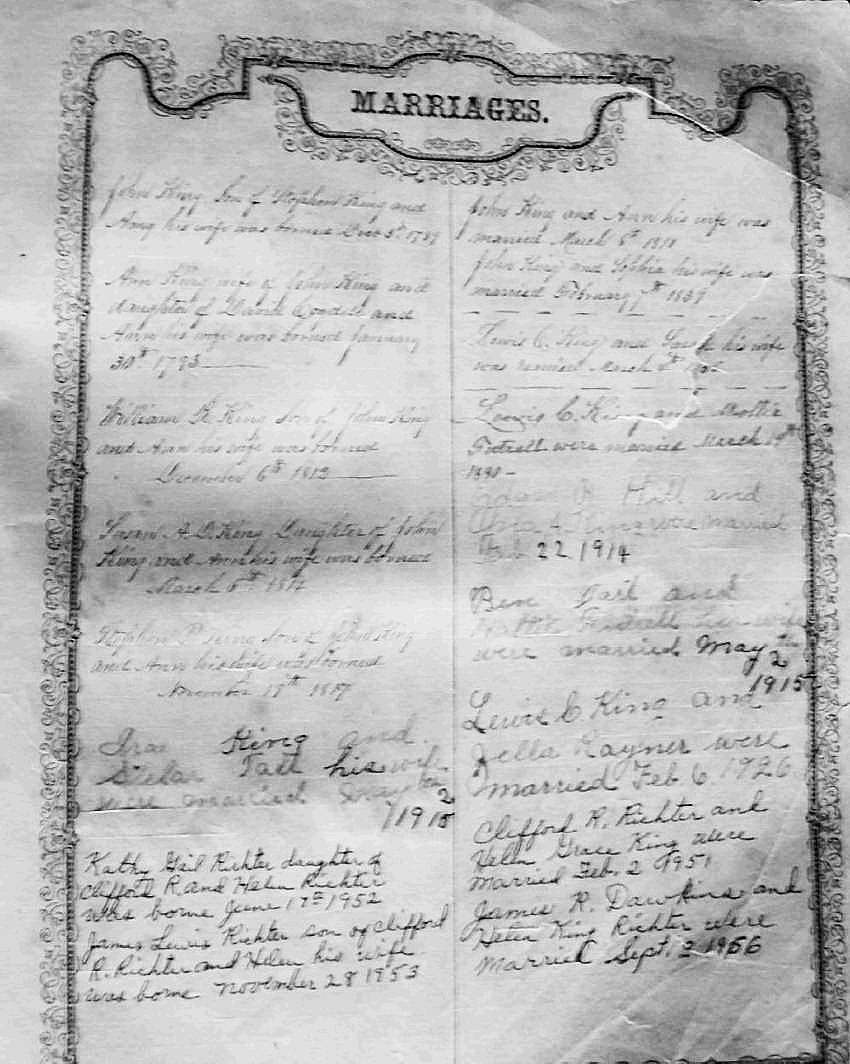 MARRIAGES.
John King Son of Stephen King and
Amy his wife was borned 5th
Ann King wife of John King and
daughter of David and
Ann his wife was borned January
30th
William R King son of John King
and Ann his wife was borned
December 6th 1813
Susan A D King Daughter of John
King and Ann his wife was borned
March 5th
Stephen King son of John King
and Ann his wife was borned
November 17th 1817
Ira King and
Tail his wife
were married May 2
1915
Kathy Gail Richter daughter of
Clifford R. and Helen Richter
was borne June 17th 1952
James Lewis Richter son of Clifford
R. Richter and Helen his wife
was borne November 28 1953
John King and Ann his wife was
married March 5th
John King and Sophia his wife was
married February 7th 1837
Lewis C. King and Sarah his wife
was married March
Lewis C. King and Mollie
Futrell were married March 19th
1890
Hill and
King were married
Feb 22 1914
Ben Tail and
Hattie Futrell his wife
were married May
2
1915
Lewis C King and
Zella Rayner were
married Feb 6 1926
Clifford R. Richter and
Helen Grace King were
married Feb. 2 1951
James R. Dawkins and
Helen King Richter were
married Sept. 2 1956